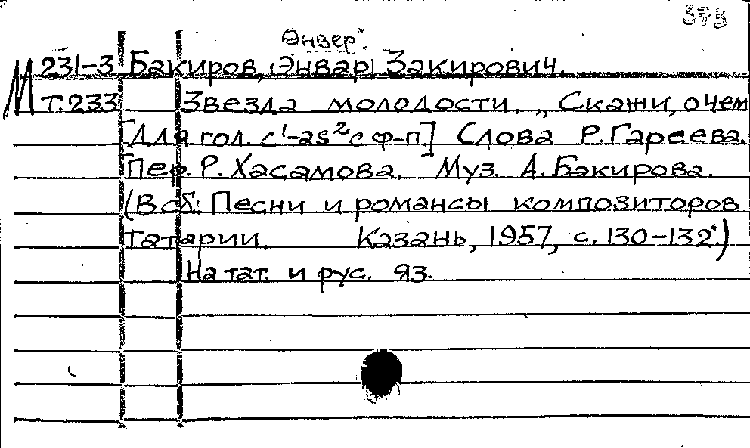 373
Әнвер
М 231-3 Бакиров, Энвар Закирович.
Т.233 Звезда молодости. „Скажи, о чем
[Для гол. c¹-as² с ф-п.] Слова Р.Гареева.
Пер. Р. Хасамова. Муз. А. Бакирова.
(В сб: Песни и романсы композиторов
Татарии. Казань, 1957, с. 130-132.)
На тат. и рус. яз.